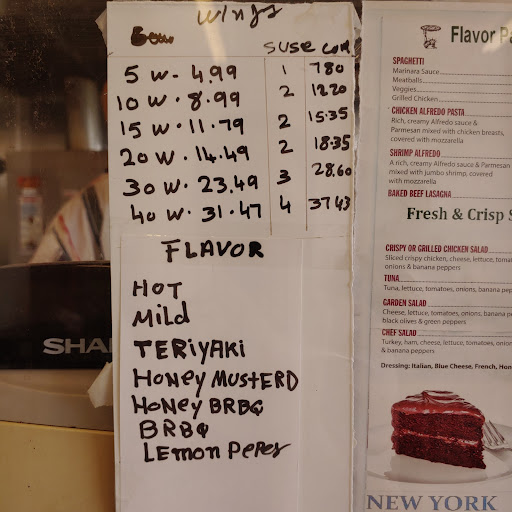 wings
suse com
5 W - 4.99 1 780
10 W . 8.99 2 1220
15 W . 11.79 2 15.35
20 W . 14.49 2 18.35
30 W . 23.49 3 28.60
40 W . 31.47 4 37.43
FLAVOR
HOT
Mild
TERiYAKi
HONEY MUSTERD
HONEY BRBQ
BRBQ
LEMON PEPER
SHA
Flavor Pa
SPAGHETTI
Marinara Sauce
Meatballs
Veggies
Grilled Chicken
CHICKEN ALFREDO PASTA
Rich, creamy Alfredo sauce &
Parmesan mixed with chicken breasts,
covered with mozzarella
SHRIMP ALFREDO
A rich, creamy Alfredo sauce & Parmesan
mixed with jumbo shrimp, covered
with mozzarella
BAKED BEEF LASAGNA
Fresh & Crisp S
CRISPY OR GRILLED CHICKEN SALAD
Sliced crispy chicken, cheese, lettuce, tomat
onions & banana peppers
TUNA
Tuna, lettuce, tomatoes, onions, banana pep
GARDEN SALAD
Cheese, lettuce, tomatoes, onions, banana pe
black olives & green peppers
CHEF SALAD
Turkey, ham, cheese, lettuce, tomatoes, onion
& banana peppers
Dressing: Italian, Blue Cheese, French, Hon
NEW YORK